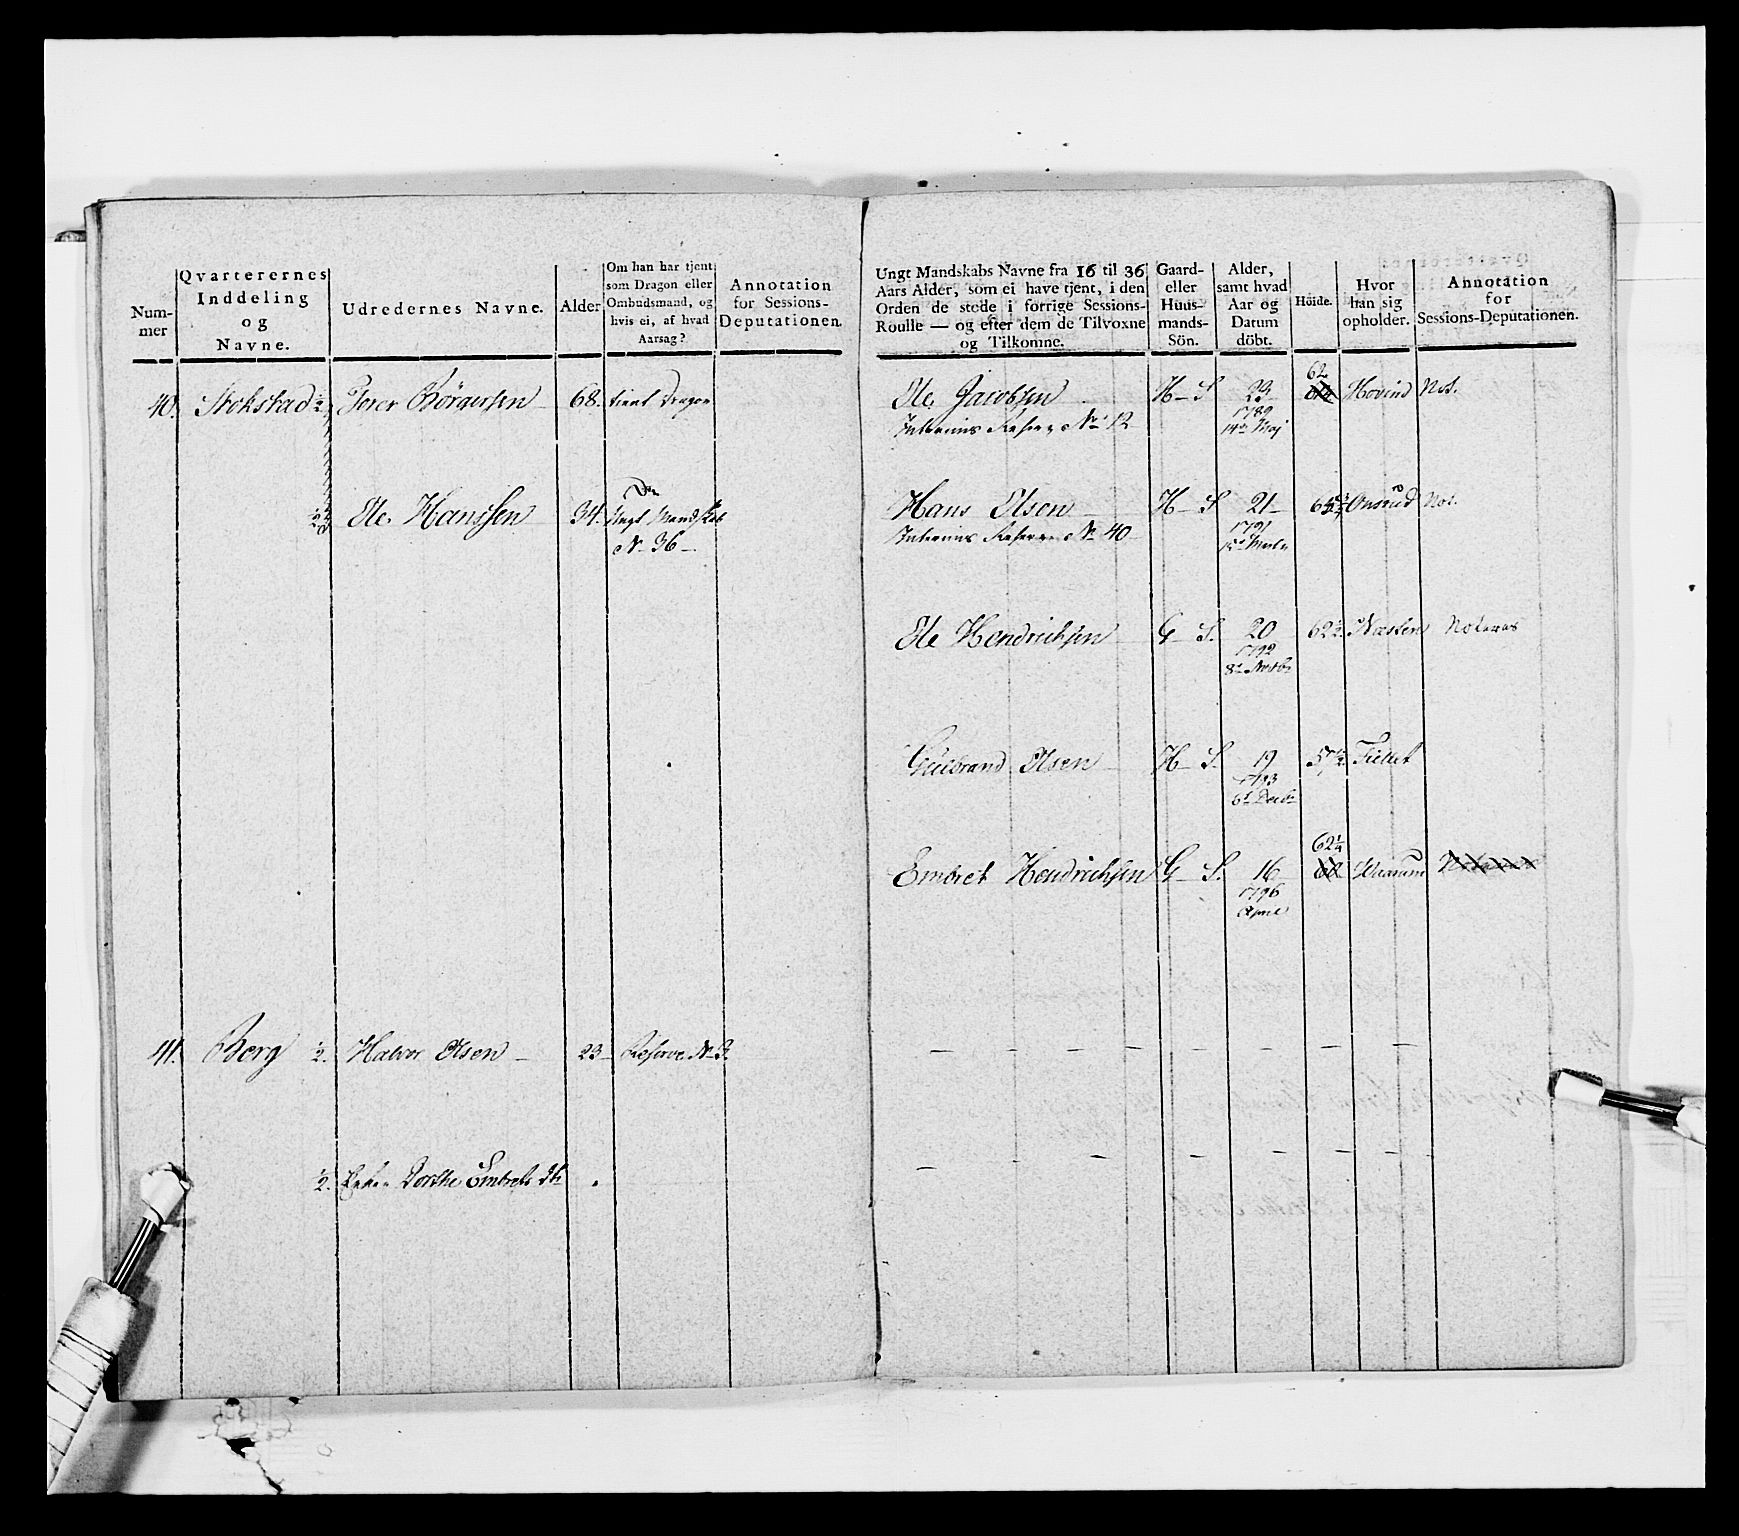 Num-
mer
Qvarterernes
Inddeling
og
Navne.
Udredernes Navne.
Alder
Om han har tjent
som Dragon eller
Ombudsmand, og
hvis ei, af hvad
Aarsag?
Annotation
for Sessions-
Deputationen.
40. Stokstad ½ Peder Börgersen 68. tient Dragon
½ Ole Hanssen 34. Ungt Mandskab
No 36
41. Berg ½. Halvor Olsen 23 Reserve No 3.
½. Enken Dorthe Embrets Dtr
Ungt Mandskabs Navne fra 16 til 36
Aars Alder, som ei have tjent, i den
Orden de stode i forrige Sessions-
Roulle — og efter dem de Tilvoxne
og Tilkomne.
Gaard-
eller
Huus-
mands-
Sön.
Alder,
samt hvad
Aar og
Datum
döbt.
Höide.
Hvor
han sig
opholder.
Annotation
for
Sessions-Deputationen.
62
Ole Jacobsen H- S 23 Hovind Not.
Interims Reserve No 12 1789
14de Maj
Hans Olsen H- S 21 Onsrud Not.
Interims Reserve No 40 1791
Ole Hendrichsen G- S. 20 62½. Næsten Noteres
1792
8de Novbr
Gulbrand Olsen H- S. 19
1793
6te Decbr
62¼
Embret Hendrichsen G- S. 16
1796
April